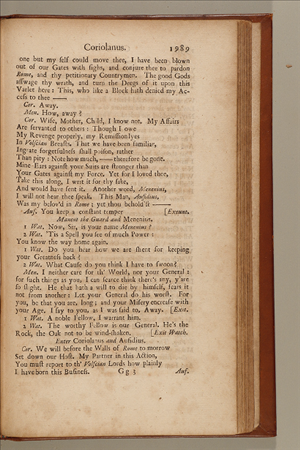 Coriolanus. 1989
one but my self could move thee, I have been blown
out of our Gates with sighs, and conjure thee to pardon
Rome, and thy petitionary Countrymen. The good Gods
asswage thy wrath, and turn the Dregs of it upon this
Varlet here: This, who like a Block hath denied my Ac-
cess to thee ——
Cor. Away.
Men. How, away?
Cor. Wife, Mother, Child, I know not. My Affairs
Are servanted to others: Though I owe
My Revenge properly, my Remission lyes
In Volscian Breasts. That we have been familiar,
Ingrate forgetfulness shall poison, rather
Than pity: Note how much, —— therefore be gone.
Mine Ears against your Suits are stronger than
Your Gates against my Force. Yet for I loved thee,
Take this along, I writ it for thy sake,
And would have sent it. Another word, Menenius,
I will not hear thee speak. This Man, Aufidius,
Was my belov'd in Rome; yet thou behold'st ——
Auf. You keep a constant temper [Exeunt.
Manent the Guard and Menenius.
1 Wat. Now, Sir, is your name Menenius?
2 Wat. 'Tis a Spell you see of much Power:
You know the way home again.
1 Wat. Do you hear how we are shent for keeping
your Greatness back?
2 Wat. What Cause do you think I have to swoon?
Men. I neither care for th' World, nor your General:
for such things as you, I can scarce think there's any, y'are
so slight. He that hath a will to die by himself, fears it
not from another: Let your General do his worst. For
you, be that you are, long; and your Misery encrease with
your Age. I say to you, as I was said to, Away. [Exit.
1 Wat. A noble Fellow, I warrant him.
2 Wat. The worthy Fellow is our General. He's the
Rock, the Oak not to be wind-shaken. [Exit Watch.
Enter Coriolanus and Aufidius.
Cor. We will before the Walls of Rome to morrow
Set down our Host. My Partner in this Action,
You must report to th' Volscian Lords how plainly
I have born this Business. G g 3 Auf.